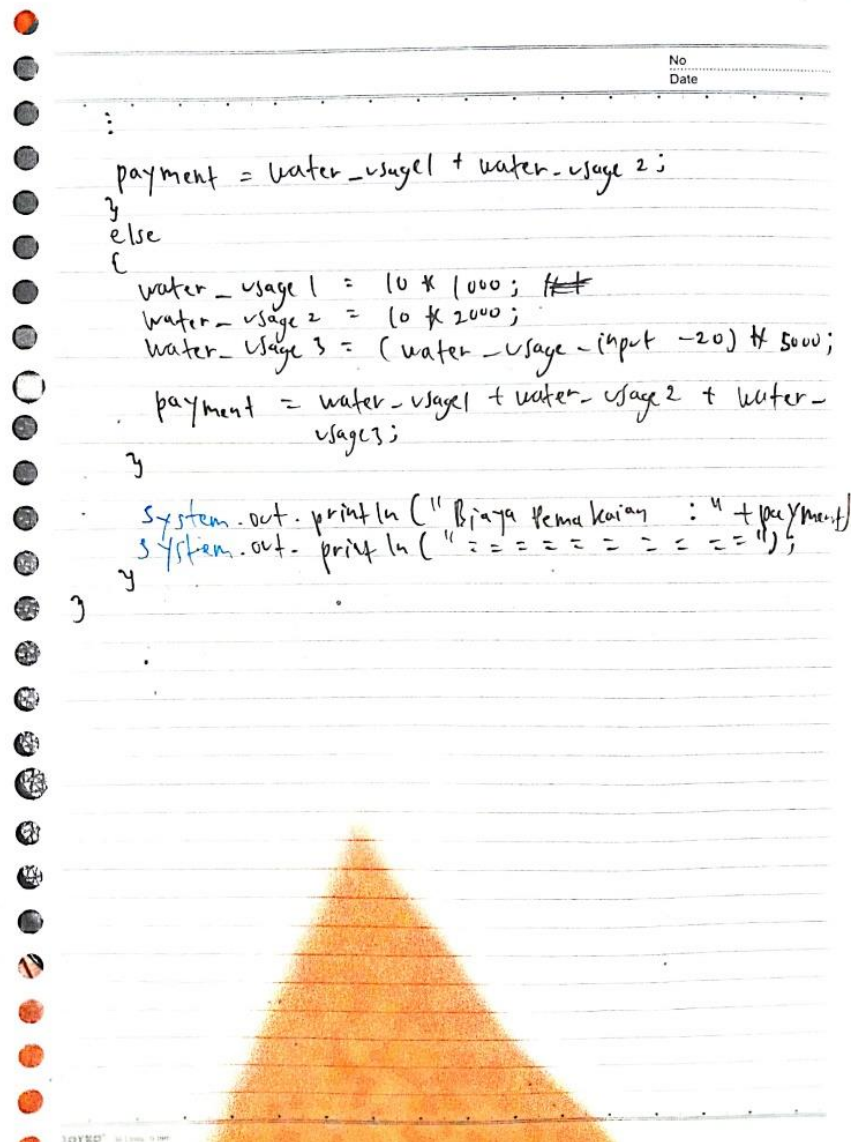 No
Date
:
payment = water_usage1 + water_usage 2;
}
else
{
water_usage 1 = 10 * 1000;
water_usage 2 = 10 * 2000;
water_usage 3 = (water_usage_input -20) * 5000;
payment = water_usage1 + water_usage 2 + water_
usage3;
}
System.out.println("Biaya Pemakaian : " + payment)
System.out.println("= = = = = = = = = =");
}
}